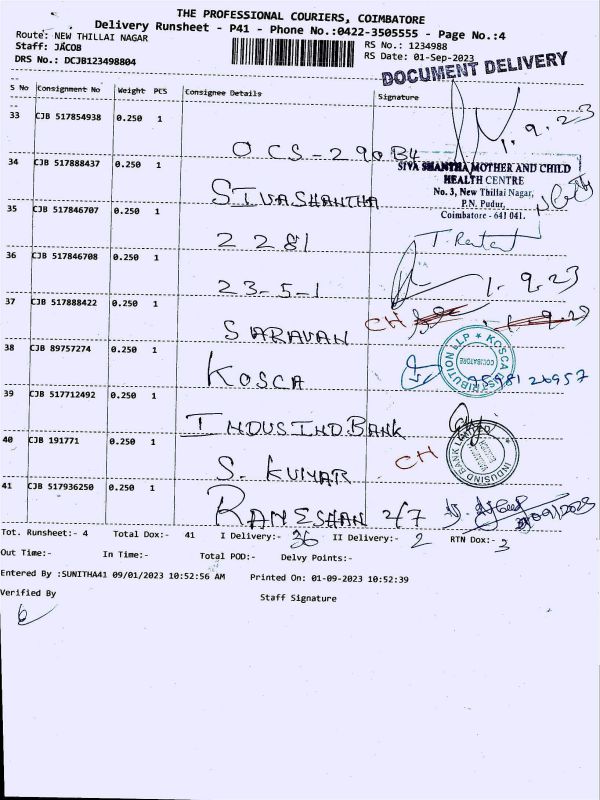 THE PROFESSIONAL COURIERS, COIMBATORE
Delivery Runsheet - P41 - Phone No.:0422-3505555 - Page No.:4
Route: NEW THILLAI NAGAR
RS No.: 1234988
Staff: JACOB
RS Date: 01-Sep-2023
DRS No.: DCJB123498804
DOCUMENT DELIVERY
S No Consignment No Weight PCS Consignee Details Signature
33 CJB 517854938 0.250 1
OCS-290B4 1.9.23
34 CJB 517888437 0.250 1
SIVASHANTHA
SIVA SHANTHA MOTHER AND CHILD
HEALTH CENTRE
No. 3, New Thillai Nagar,
P.N. Pudur,
Coimbatore - 641 041.
35 CJB 517846707 0.250 1
2281
36 CJB 517846708 0.250 1
23-5-1 1.9.23
37 CJB 517888422 0.250 1
SARAVAN CH
38 CJB 89757274 0.250 1
KOSCA
39 CJB 517712492 0.250 1
INDUSINDBANK
40 CJB 191771 0.250 1
S. KUMAR CH
41 CJB 517936250 0.250 1
RAMESHAN 2/7
Tot. Runsheet:- 4 Total Dox:- 41 I Delivery:- 36 II Delivery:- 2 RTN Dox:- 3
Out Time:- In Time:- Total POD:- Delvy Points:-
Entered By :SUNITHA41 09/01/2023 10:52:56 AM Printed On: 01-09-2023 10:52:39
Verified By Staff Signature